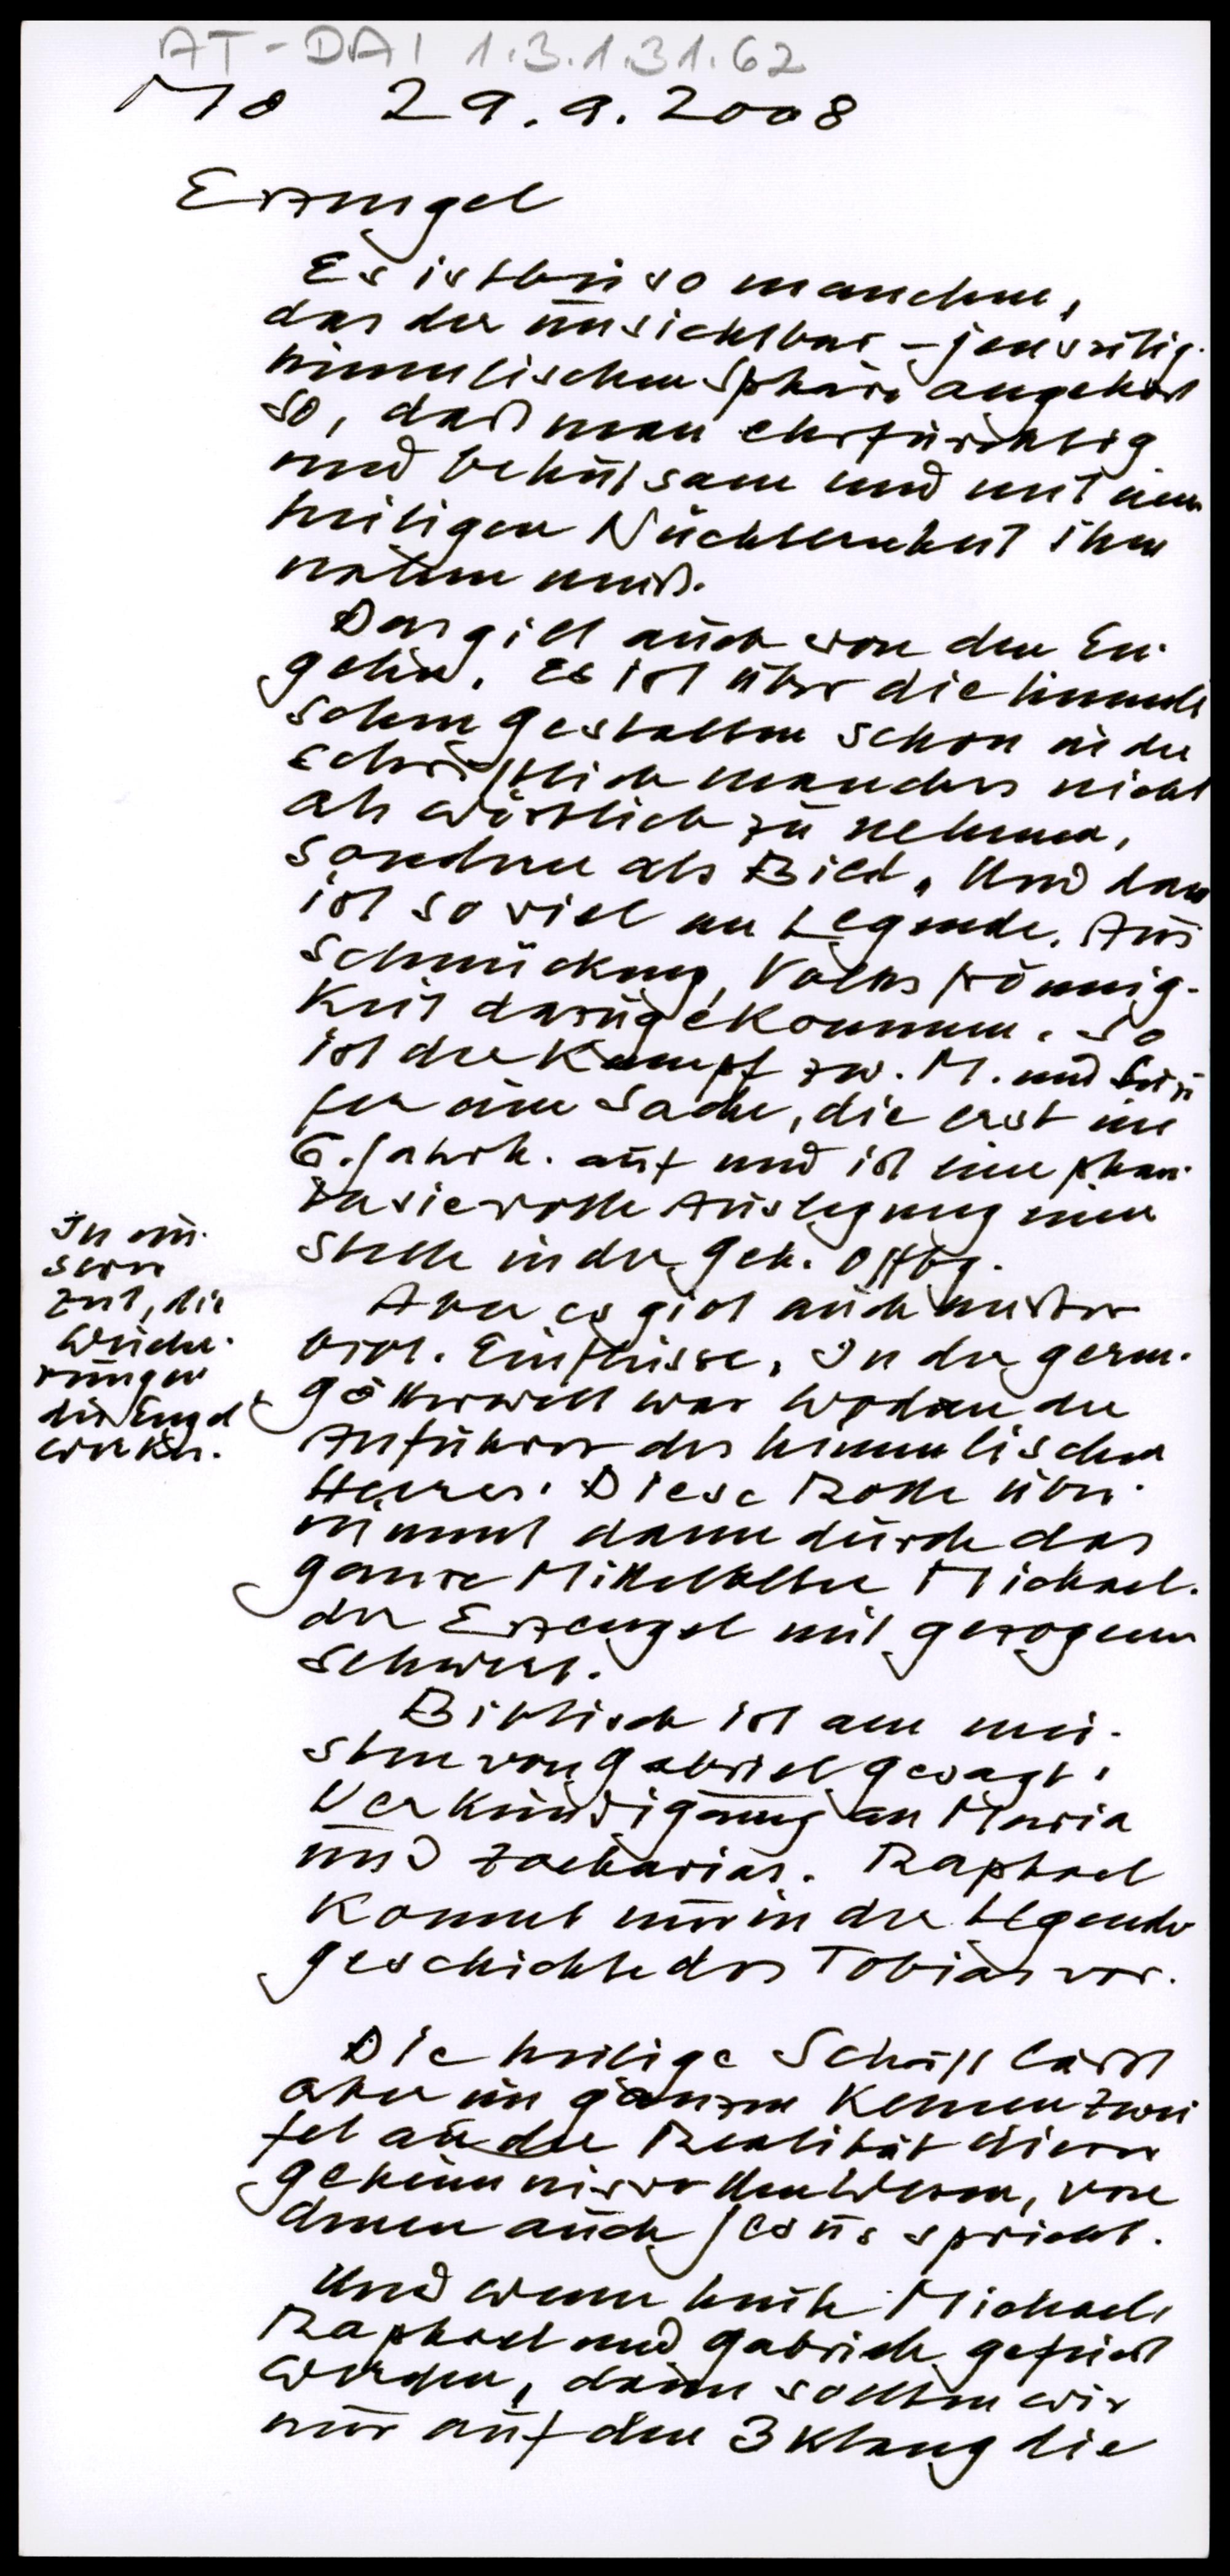 AT-DAI 1.3.1.31.62
Mo 29.9.2008
Erzengel
Es ist bei so manchem,
das der unsichtbar-jenseitig-
himmlischen Sphäre angehört
so, daß man ehrfürchtig
und behutsam und mit einer
heiligen Nüchternheit ihm
nahen muß.
Das gilt auch von den En-
geln. Es ist über die himmli
schen Gestalten schon in der
Schrift manches nicht
als wörtlich zu nehmen,
sondern als Bild. Und dann
ist so viel an Legende, Aus
schmückung, Volksfrömmig-
keit dazugekommen. So
ist der Kampf zw. M. und Luzi
fer eine Sache, die erst im
6. Jahrh. auf und ist eine phan-
tasievolle Auslegung einer
Stelle in der Geh. Offbg.
Aber es gibt auch außer
bibl. Einflüsse. In der germ.
Götterwelt war Wodan der
Anführer des himmlischen
Heeres. Diese Rolle über-
nimmt dann durch das
ganze Mittelalter Michael.
der Erzengel mit gezogenem
Schwert.
In un-
serer
Zeit, die
Wuche-
rungen
der Engel
Biblisch ist am mei-
sten von Gabriel gesagt:
Verkündigung an Maria
und Zacharias. Raphael
kommt nur in der Legende
geschichte des Tobias vor.
Die heilige Schrift läßt
aber im ganzen keinen Zwei
fel an der Realität dieser
geheimnisvollen Wesen, von
denen auch Jesus spricht.
Und wenn heute Michael,
Raphael und Gabriel gefeiert
werden, dann sollten wir
nur auf den 3klang die